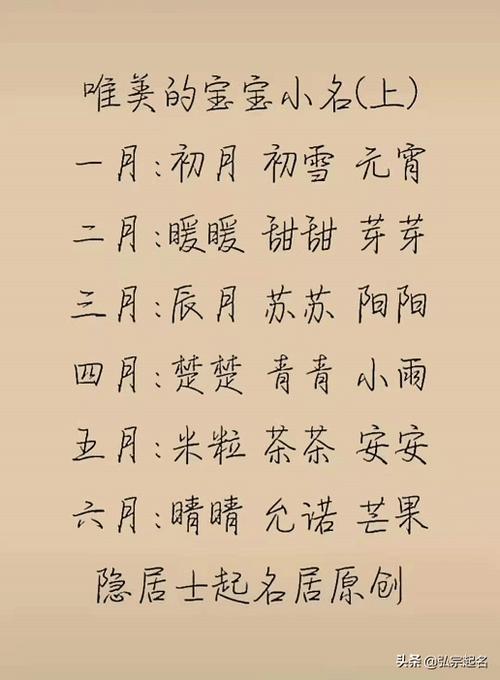 唯美的宝宝小名(上)
一月:初月 初雪 元宵
二月:暖暖 甜甜 芽芽
三月:辰月 苏苏 阳阳
四月:楚楚 青青 小雨
五月:米粒 茶茶 安安
六月:晴晴 允诺 芒果
隐居士起名居原创
头条 @弘宗起名